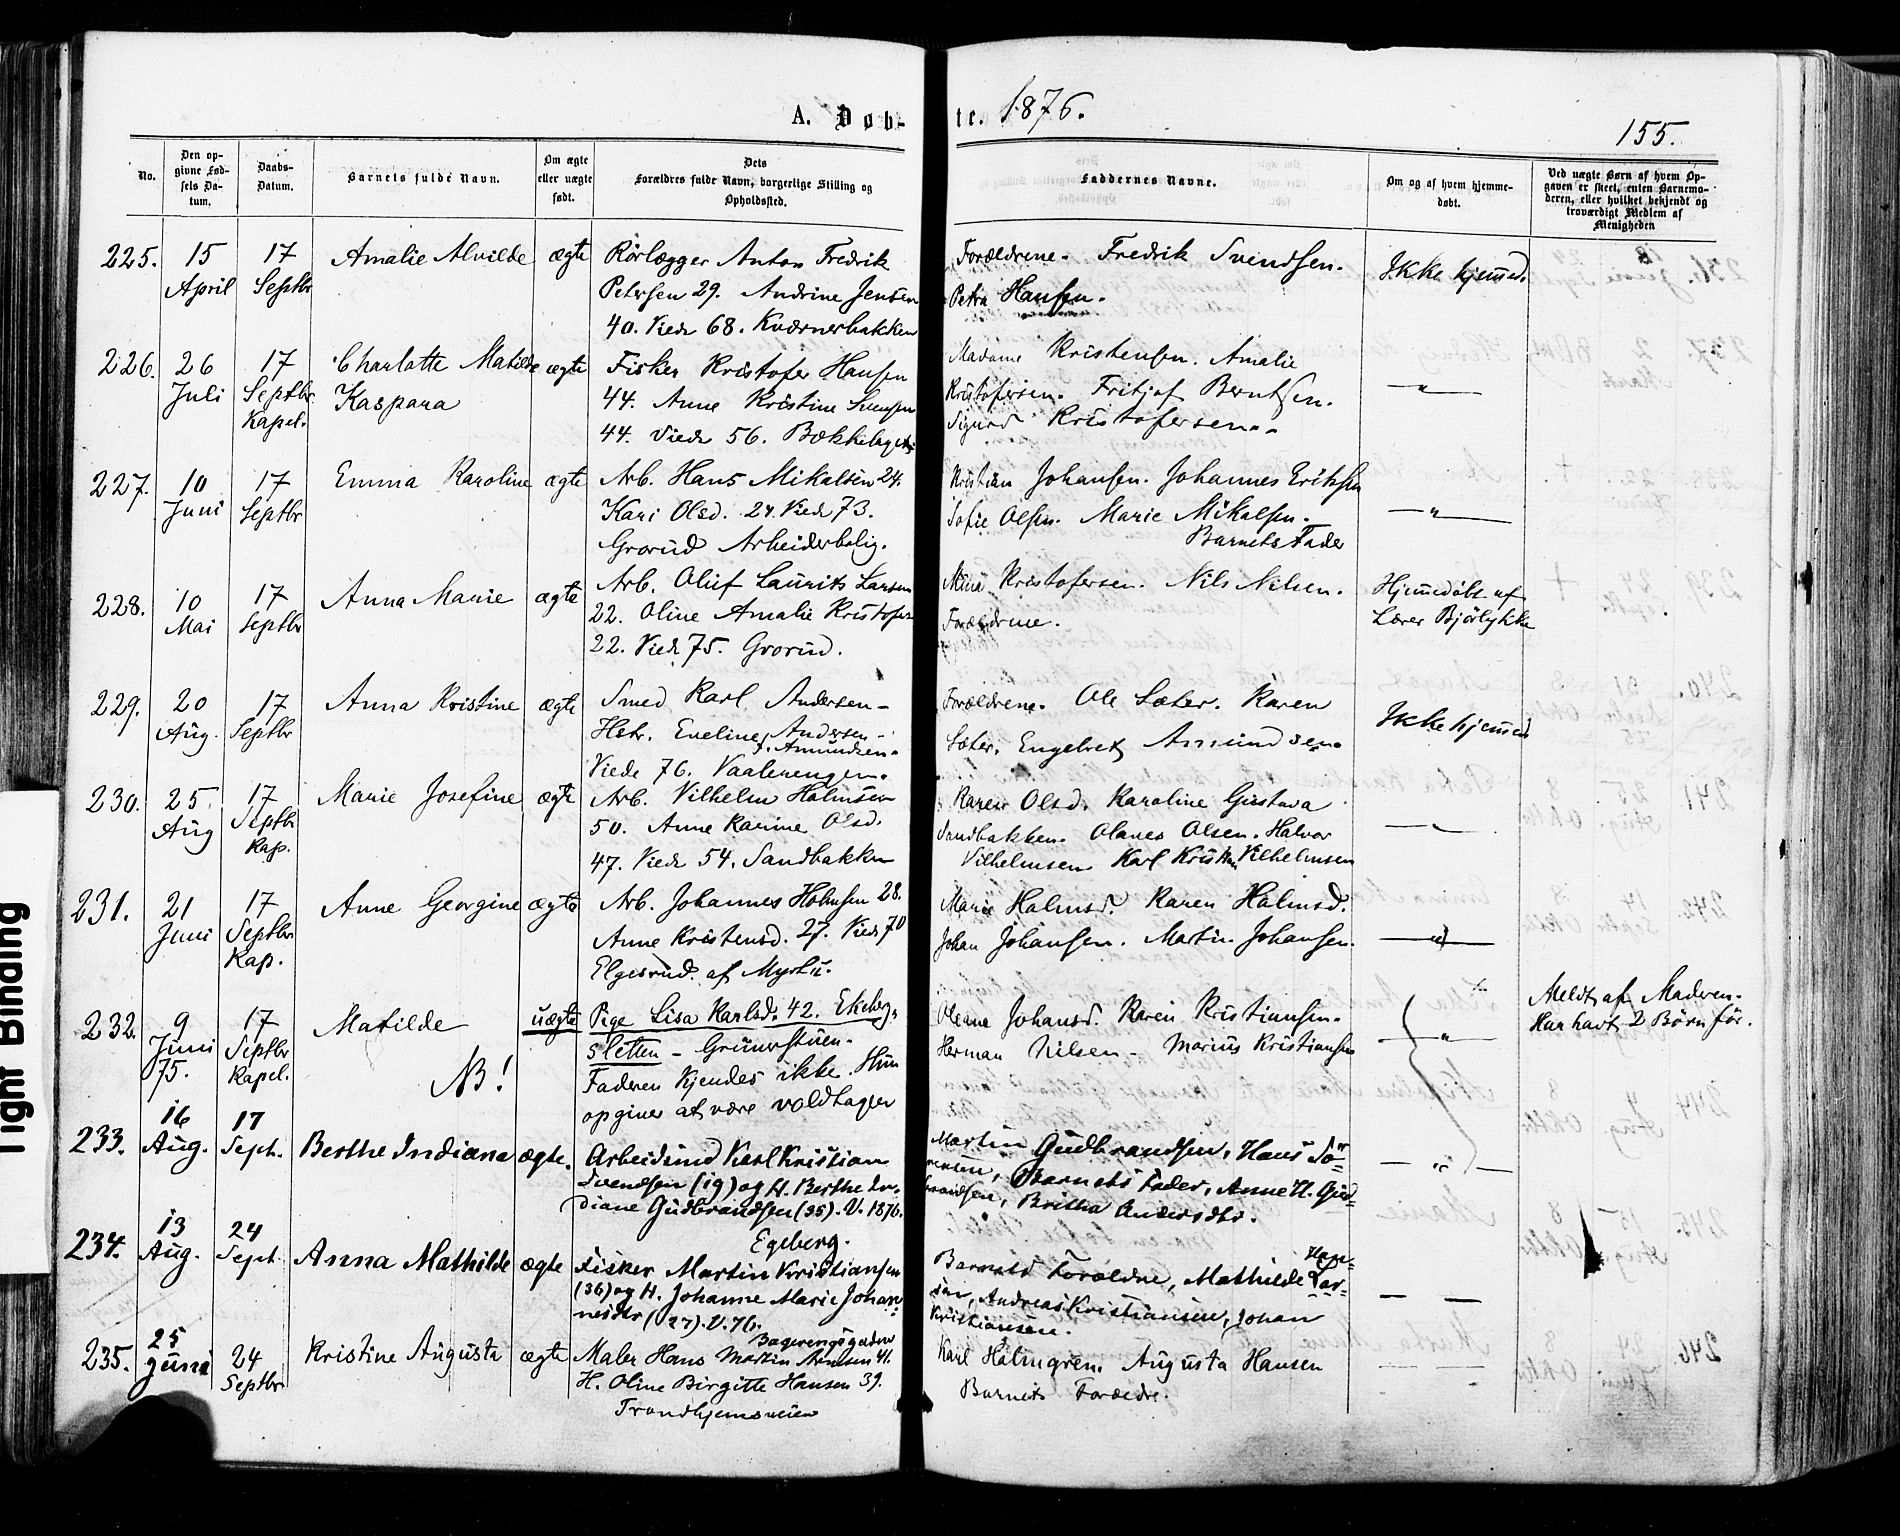 A. Døb-
te. 1876.
155.
No.
Den op-
givne Fød-
sels Da-
tum.
Daabs-
Datum.
Barnets fulde Navn.
Om ægte
eller uægte
født.
Dets
Forældres fulde Navn, borgerlige Stilling og
Opholdssted.
Faddernes Navne.
Om og af hvem hjemme-
døbt.
Ved uægte Børn af hvem Op-
gaven er skeet, enten Barnemo-
deren, eller hvilket bekjendt og
troværdigt Medlem af
Menigheden
225.
15
April
17
Septbr
Amalie Alvilde
ægte
Rörlægger Anton Fredrik
Petersen 29. Andrine Jensen
40. Viede 68. Kværnerbakken
Forældrene. Fredrik Svendsen.
Petra Hansen.
Ikke hjemmed.
226.
26
Juli
17
Septbr
Kapel.
Charlotte Matilde
Kaspara
ægte
Fisker Kristofer Hansen
44. Anne Kristine Svensen
44. Viede 56. Bækkelaget
Madame Kristensen. Amalie
Kristofersen. Fritjof Berntsen.
Sigurd Kristofersen.
— " —
227.
10
Juni
17
Septbr
Emma Karoline
ægte
Arb. Hans Mikalsen 24.
Kari Olsd. 24. Viede 73.
Grorud Arbeiderbolig.
Kristian Johansen. Johannes Eriksen
Sofie Olsen. Marie Mikalsen.
Barnets Fader
— " —
228.
10
Mai
17
Septbr
Anna Marie
ægte
Arb. Oluf Laurits Larsen
22. Oline Amalie Kristofers
22. Viede 75. Grorud.
Mina Kristofersen. Nils Nilsen.
Forældrene.
Hjemmedöbt af
Lærer Bjölykke
229.
20
Aug.
17
Septbr
Anna Kristine
ægte
Smed Karl Andersen –
Hstr. Eveline Andersen –
f. Amundsen.
Viede 76. Vaalerengen.
Forældrene. Ole Sæter. Karen
Sæter. Engebret Amundsen.
Ikke hjemmed
230.
25
Aug
17
Septbr
Kap.
Marie Josefine
ægte
Arb. Vilhelm Halmsen
50. Anne Karine Olsd.
47. Viede 54. Sandbakken
Karen Olsd. Karoline Gustava
Sandbakken. Olaves Olsen. Halvor
Vilhelmsen Karl Kristian Vilhelmsen
— " —
231.
21
Juni
17
Septbr
Kap.
Anne Georgine
ægte
Arb. Johannes Holmsen 28.
Anne Kristensd. 27. Viede 70
Elgesrud af
Marie Halmsd. Karen Halmsd.
Johan Johansen. Martin Johansen.
— " —
232.
9
Juni
75.
17
Septbr
Kapel.
Matilde
NB!
uægte
Pige Lisa Karlsd. 42. Ekeberg-
sletten – Grünerstuen.
Faderen kjendes ikke. Hun
opgiver at være voldtagen
Oleane Johansd. Karen Kristiansen.
Herman Nilsen – Marius Kristiansen
— " —
Meldt af Moderen.
Har havt 2 Børn før.
233.
16
Aug.
17
Sept.
Berthe Indiana
ægte.
Arbeidsmd Karl Kristian
Svendsen (19) og H. Berthe In-
diane Gudbrandsen (35). V. 1876.
Egeberg.
Martin Gudbrandsen, Hans Sö-
rensen, Barnets Fader, Anne H. Gud-
brandsen, Britha Andersdtr.
— " —
234.
13
Aug.
24
Sept.
Anna Mathilde
ægte
Fisker Martin Kristiansen
(36) og H. Johanne Marie Johan-
nesdtr (27). V. 76.
Barnets Forældre, Mathilde Lar-
sen, Andreas Kristiansen, Johan
Kristiansen.
— —
235.
25
Juni
24
Septbr
Kristine Augusta
ægte
Maler Hans Martin Arntsen 41.
H. Oline Birgitte Hansen 39.
Trondhjemsveien
Karl Holmgren. Augusta Hansen
Barnets Forældre.
Tight Binding